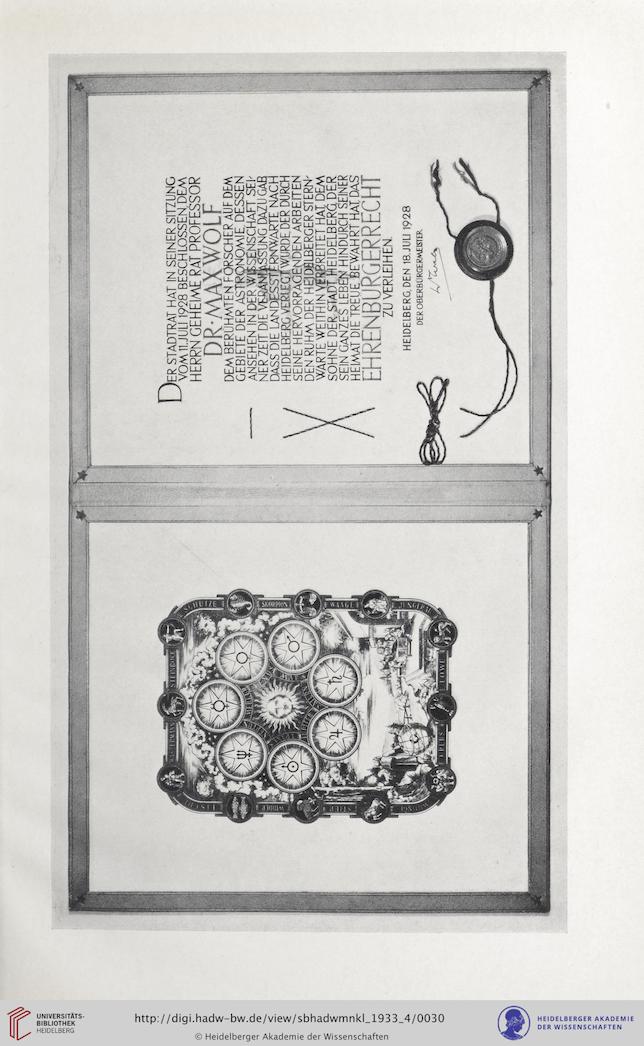 DER STADTRAT HAT IN SEINER SITZUNG
VOM 11. JULI 1928 BESCHLOSSEN, DEM
HERRN GEHEIME RAT PROFESSOR
DR. MAX WOLF
DEM BERÜHMTEN FORSCHER AUF DEM
GEBIETE DER ASTRONOMIE, DESSEN
ANSEHEN IN DER WISSENSCHAFT SEI-
NER ZEIT DIE VERANLASSUNG DAZU GAB
DASS DIE LANDESSTERNWARTE NACH
HEIDELBERG VERLEGT WURDE DER DURCH
SEINE HERVORRAGENDEN ARBEITEN
DEN RUHM DER HEIDELBERGER STERN-
WARTE WEITHIN VERBREITET HAT DEM
SOHNE DER STADT HEIDELBERG, DER
SEIN GANZES LEBEN HINDURCH SEINER
HEIMAT DIE TREUE BEWAHRT HAT, DAS
EHRENBÜRGERRECHT
ZU VERLEIHEN.
HEIDELBERG, DEN 18. JULI 1928
DER OBERBÜRGERMEISTER
SCHÜTZE
SKORPION
WAAGE
JUNGFRAU
STEINBOCK
LÖWE
WASSERMANN
KREBS
FISCHE
WIDDER
STIER
UNIVERSITÄTS-
BIBLIOTHEK
HEIDELBERG
http://digi.hadw-bw.de/view/sbhadwmnkl_1933_4/0030
© Heidelberger Akademie der Wissenschaften
HEIDELBERGER AKADEMIE
DER WISSENSCHAFTEN